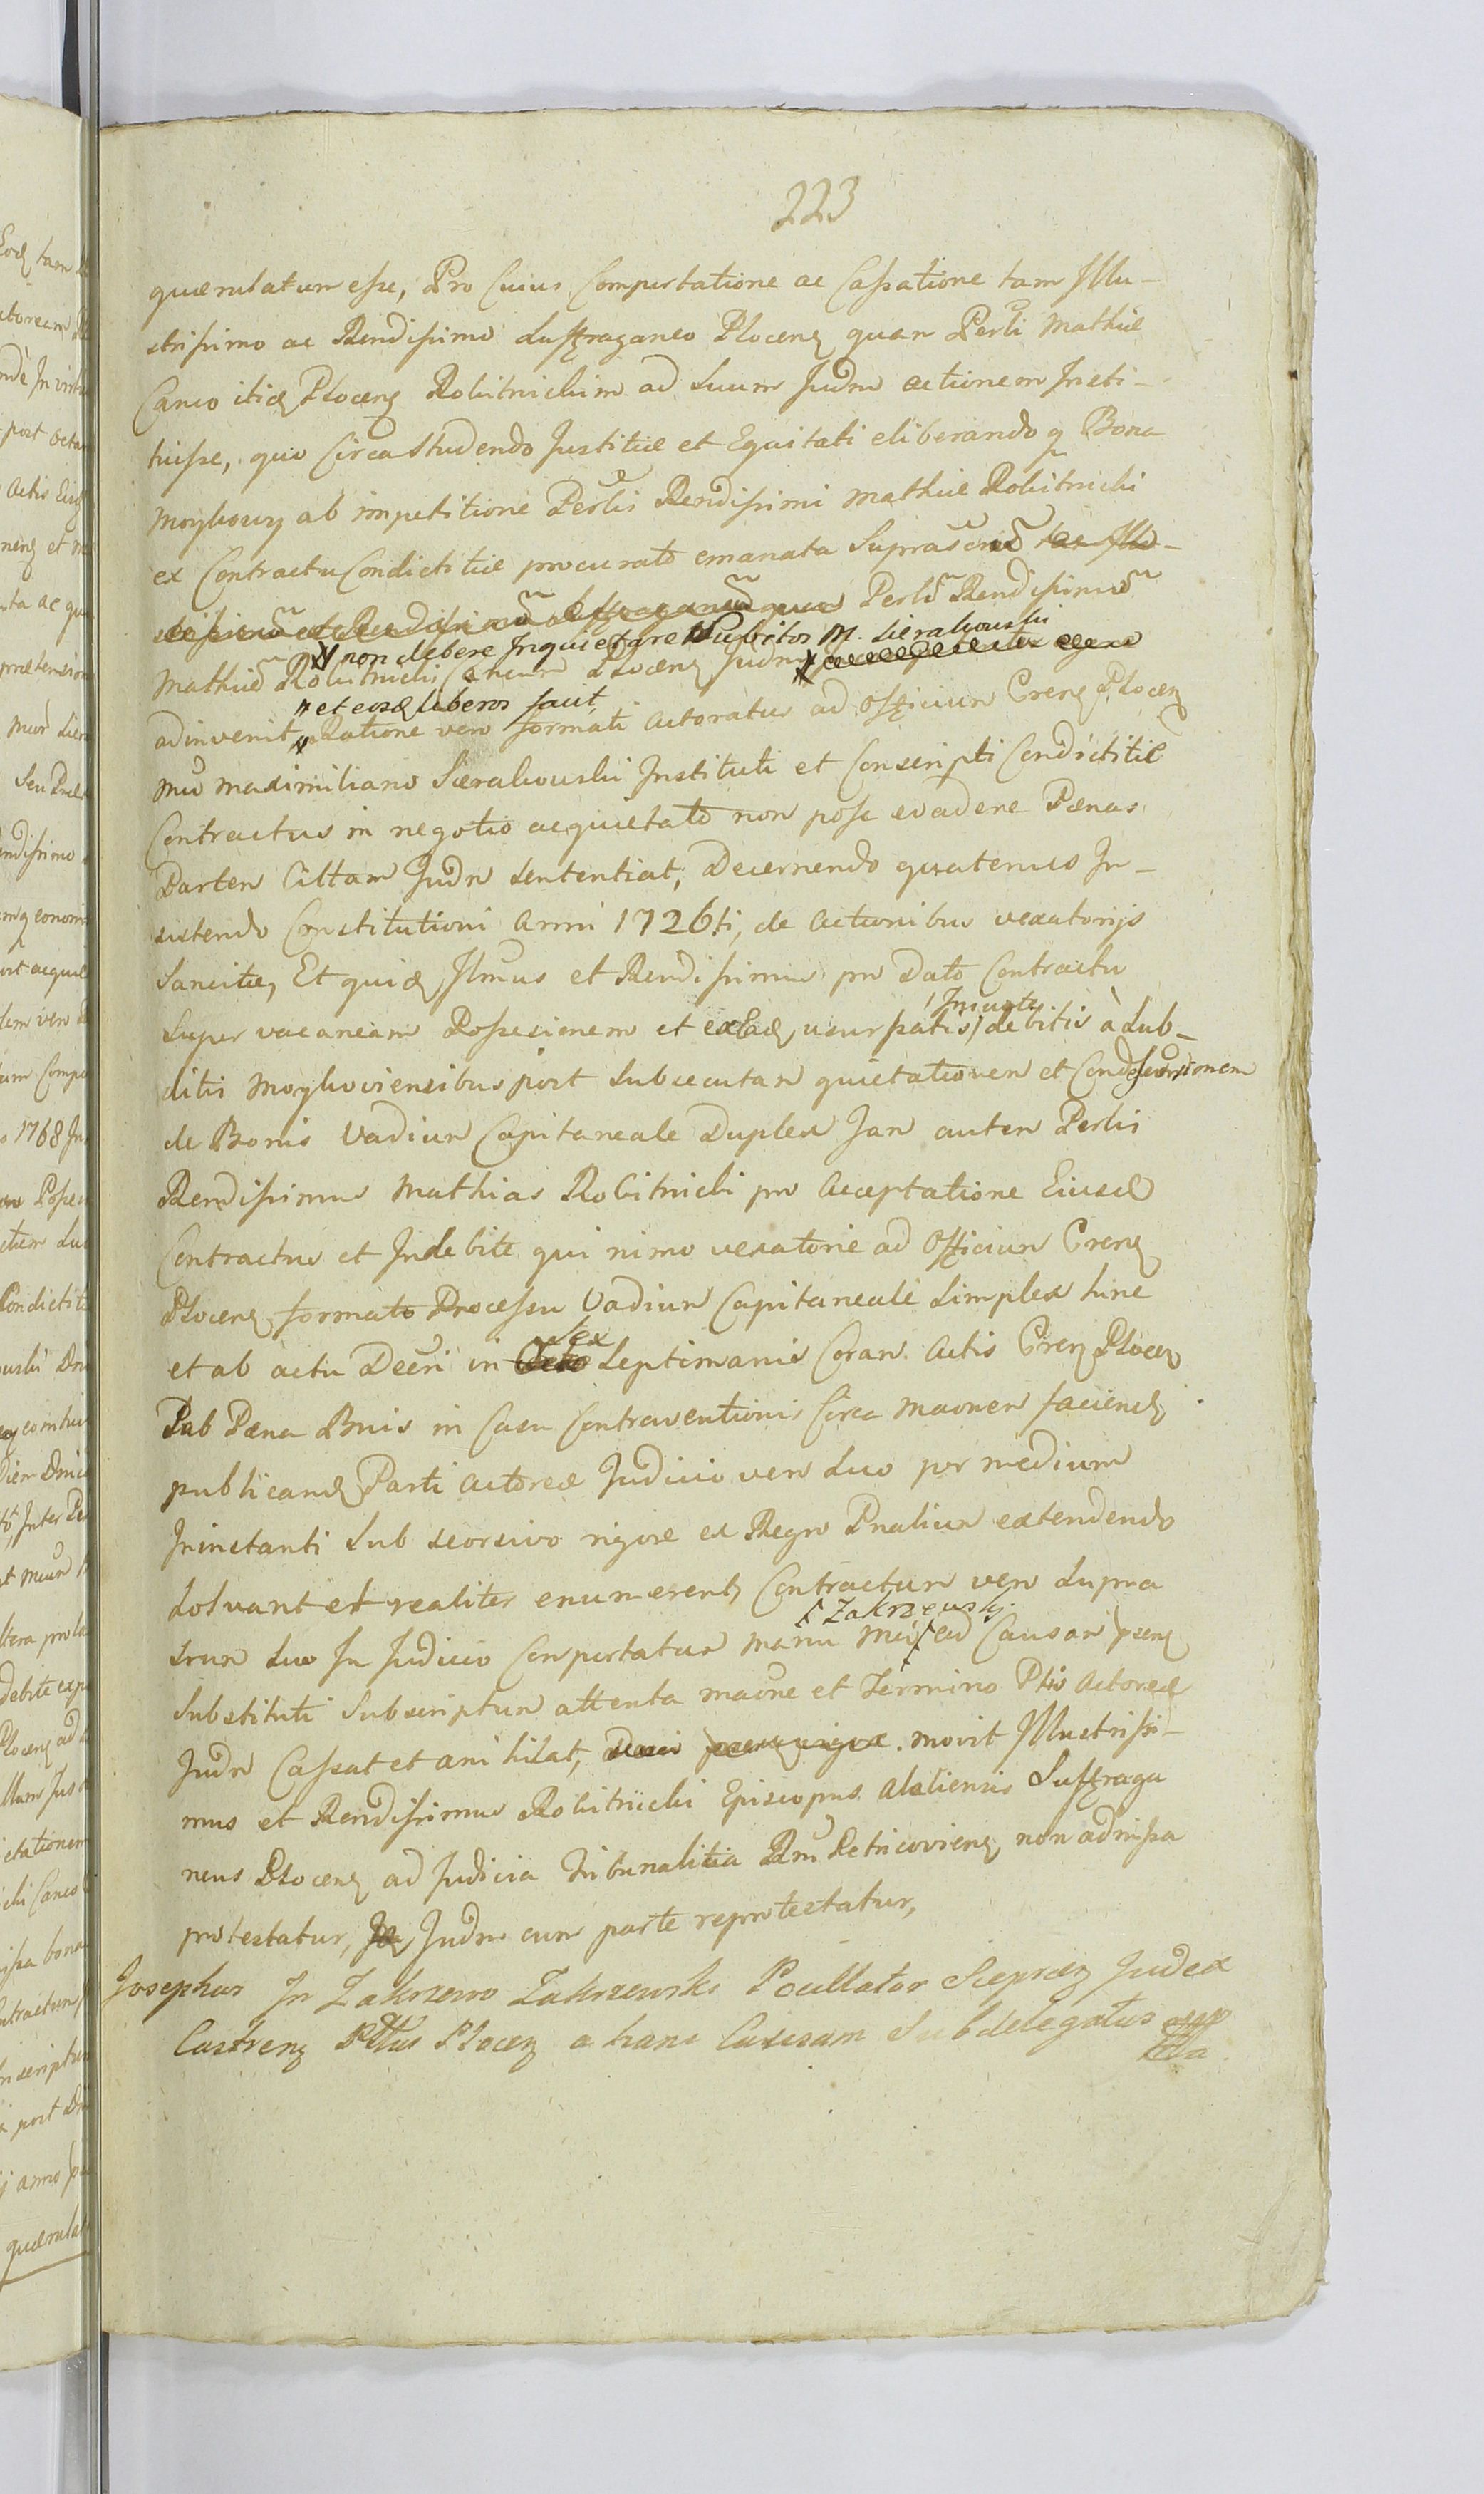 223
quærulatum esse, Pro Cuius Comportatione ac Cassatione tam Illu-
strissimo ac Rendissimo Suffraganeo Plocen quam Perli Mathiæ
Canco itid Plocen Robitnickim ad Suum Judm actionem Insti-
tuisse, quo Circa Studendo Justitiæ et Equitati eliberando q Bona
Moykowy ab impetitione Perlis Rendissimi Mathiæ Robitnicki
ex Contractu Condictitiæ procurato emanata Suprascrid tae Illu-
strissimū et Rendissimū Suffraganeū quam Perlē Rendissimū
X non debere Inquietare Subitos M. Sierakowski
Mathiā Robitnicki Plocen Judm
" et eosq liberos facit
adinvenit Ratione vero formati Actoratus ad Officium Cren Plocen
Mco Maximiliano Sierakowski Instituti et Conscripti Condictitie
Contractus in negotio acquietato non posse evadere Pænas
Partem Cittam Judm sententiat, Decernendo quatenus In-
sistendo Constitutioni Anni 1726ti, de Actionibus vexatorijs
Sancitæ, Et quid Ilmus et Rendissimus pro Dato Contractu
Super vacaneam Possesionem et ex Ead usurpatis / Iniuste / debitis à Sub-
ditis Moykoviensibus post Subsecutam quietationem et Condescensionem
de Bonis Vadium Capitaneale Duplex Jam autem Perlis
Rendissimus Mathias Robitnicki pro Acceptatione Eiusd
Contractus et Indebite qui nimo vexatorie ad Officium Cren
Plocen formato Processu Vadium Capitaneale Simplex hinc
Sex
et ab actu Decri in Octo Septimanis Coram Actis Cren Plocen
Sub Pæna Bnis in Casu Contraventionis Circa Maonem faciend
publicand Parti Actoreæ Judicio vero Suo per medium
Ininstanti Sub seorsivo rigore ex Regro Pnalium extendendo
Solvant et realiter enumerent, Contractum vero Supra
[ Zakrzewskj.
Srum Suo In Judicio Conportatum Manu Mci ad Causam psen
Substituti Subscriptum attenta maone et Termino Ptis Actoreæ
Judm Cassat et anihilat, movit Illustrissi-
mus et Rendissimus Robitnicki Episcopus Alaliensis Suffraga
neus Plocen ad Judicia Tribunalitia Rni Petricovien non admissa
protestatur, Judm cum parte reprotestatur,
Josephus In Zakrzewo Zakrzewski Pocillator Sieprcen Judex
Castren Pttus Plocen a hanc Causam Subdelegatus mp